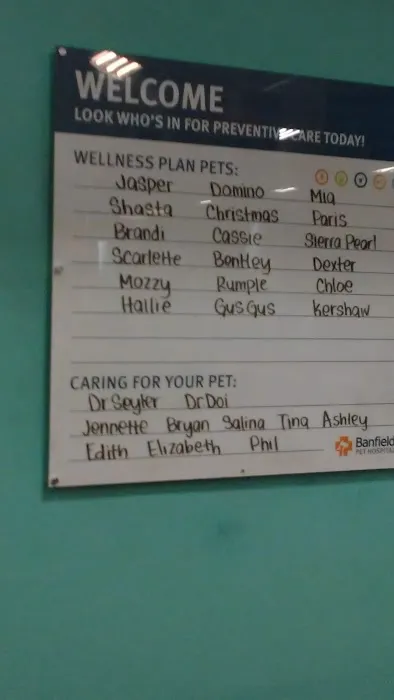 WELCOME
LOOK WHO'S IN FOR PREVENTIVE CARE TODAY!
WELLNESS PLAN PETS:
Jasper Domino Mia
Shasta Christmas Paris
Brandi Cassie Sierra Pearl
Scarlette Bentley Dexter
Mozzy Rumple Chloe
Hallie Gus Gus Kershaw
CARING FOR YOUR PET:
Dr Seyler Dr Doi
Jennette Bryan Salina Tina Ashley
Edith Elizabeth Phil
Banfield
PET HOSPITAL